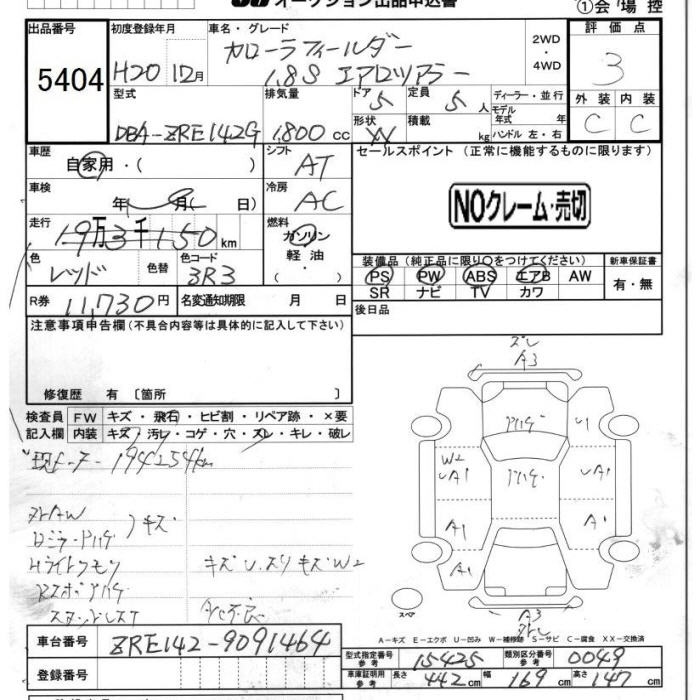 オークション出品申込書
①会場控
出品番号
5404
初度登録年月
H20 12月
車名・グレード
カローラフィールダー
1.8S エアロツアラー
2WD
・
4WD
評価点
3
型式
DBA-ZRE142G
排気量
1,800 cc
ドア 5
定員 5 人
形状 W
積載 kg
ディーラー・並行
モデル年式 年
ハンドル 左・右
外装 内装
C C
車歴
自家用・( )
シフト
AT
セールスポイント (正常に機能するものに限ります)
車検
年 月( 日)
冷房
AC
NOクレーム・売切
走行
19万3千150km
燃料
ガソリン
軽油・
( )
色
レッド
色替
色コード
3R3
装備品 (純正品に限り○をつけてください)
PS PW ABS エアB AW
SR ナビ TV カワ
新車保証書
有・無
R券 11,730円
名変通知期限 月 日
後日品
注意事項申告欄(不具合内容等は具体的に記入して下さい)
修復歴 有〔箇所 〕
検査員記入欄
FW キズ・飛石・ヒビ割・リペア跡・×要
内装 キズ・汚レ・コゲ・穴・スレ・キレ・破レ
194254km
キズ
キズU、スリキズW2
A/C不良
ズレ
A3
U1
W2
UA1
UA1
A1
A1
A1
A3
スペア
A-キズ E-エクボ U-凹み W-補修跡 S-サビ C-腐食 XX-交換済
車台番号
ZRE142-9091464
登録番号
型式指定番号 参考 15425
類別区分番号 参考 0049
車庫証明用 参考 長さ 442cm 幅 169cm 高さ 147cm